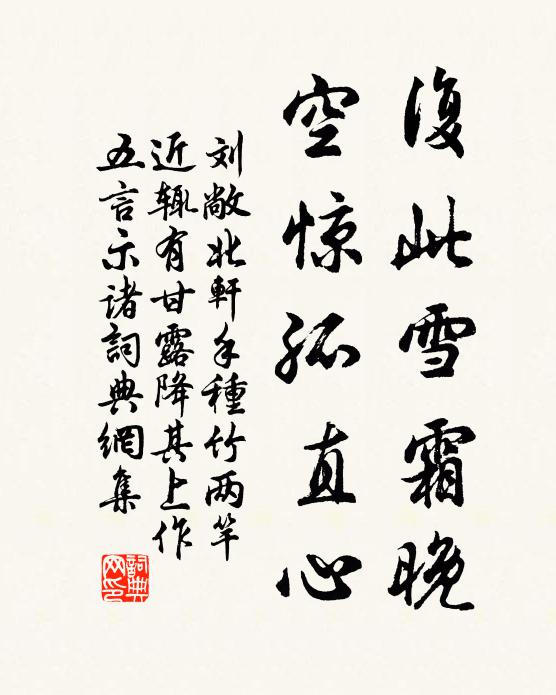 復此雪霜晚
空惊孤直心
刘敞北軒手種竹两竿
近辄有甘露降其上作
五言示诸詞典網集
詞典网印